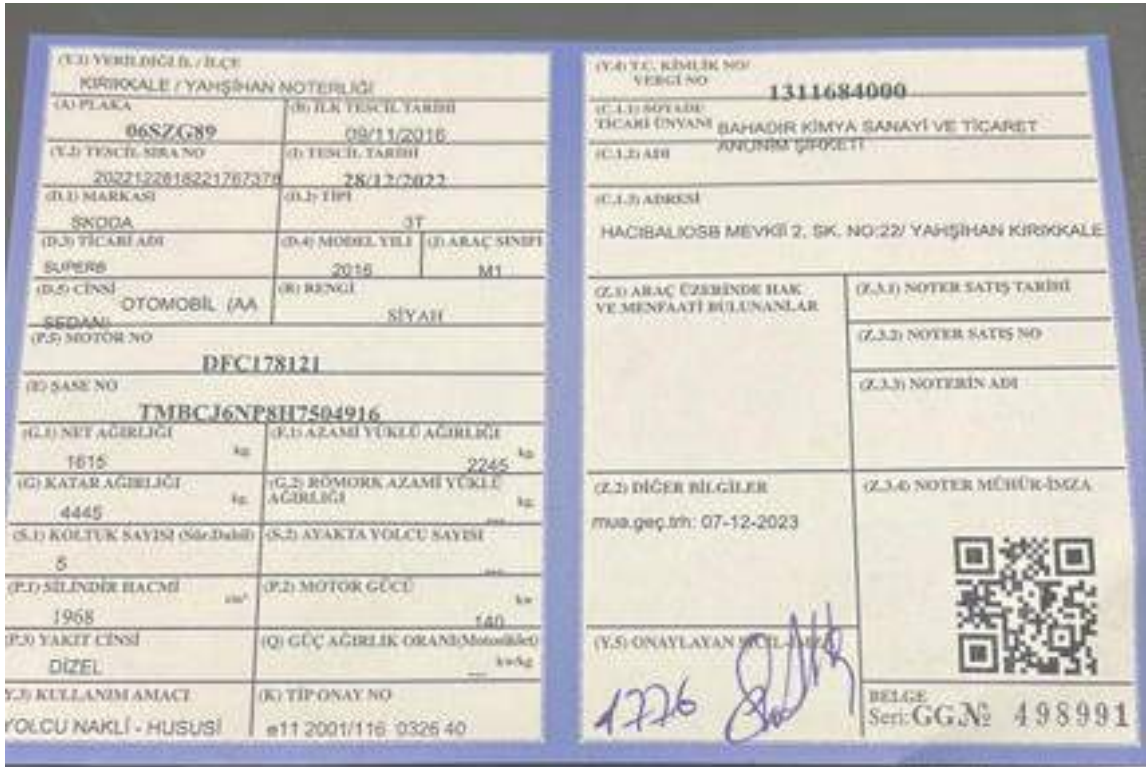 (Y.1) VERİLDİĞİ İL / İLÇE
KIRIKKALE / YAHŞİHAN NOTERLİĞİ
(A) PLAKA
06SZG89
(B) İLK TESCİL TARİHİ
09/11/2016
(Y.2) TESCİL SIRA NO
(I) TESCİL TARİHİ
28/12/2022
(D.1) MARKASI
SKODA
(D.2) TİPİ
3T
(D.3) TİCARİ ADI
SUPERB
(D.4) MODEL YILI
2016
(J) ARAÇ SINIFI
M1
(D.5) CİNSİ
OTOMOBİL (AA
SEDAN)
(R) RENGİ
SİYAH
(P.5) MOTOR NO
DFC178121
(E) ŞASE NO
TMBCJ6NP8H7504916
(G.1) NET AĞIRLIĞI
kg.
1615
(F.1) AZAMİ YÜKLÜ AĞIRLIĞI
kg.
2245
(G) KATAR AĞIRLIĞI
kg.
4445
(G.2) RÖMORK AZAMİ YÜKLÜ
AĞIRLIĞI
kg.
---
(S.1) KOLTUK SAYISI (Sür.Dahil)
5
(S.2) AYAKTA YOLCU SAYISI
---
(P.1) SİLİNDİR HACMİ
cm³
1968
(P.2) MOTOR GÜCÜ
kw
140
(P.3) YAKIT CİNSİ
DİZEL
(Q) GÜÇ AĞIRLIK ORANI(Motosiklet)
kw/kg
---
(Y.3) KULLANIM AMACI
YOLCU NAKLİ - HUSUSİ
(K) TİP ONAY NO
e11 2001/116 0326 40
(Y.4) T.C. KİMLİK NO/
VERGİ NO
1311684000
(C.1.1) SOYADI/
TİCARİ ÜNVANI
BAHADIR KİMYA SANAYİ VE TİCARET
ANONİM ŞİRKETİ
(C.1.2) ADI
(C.1.3) ADRESİ
HACIBALIOSB MEVKİİ 2. SK. NO:22/ YAHŞİHAN KIRIKKALE
(Z.1) ARAÇ ÜZERİNDE HAK
VE MENFAATİ BULUNANLAR
(Z.3.1) NOTER SATIŞ TARİHİ
(Z.3.2) NOTER SATIŞ NO
(Z.3.3) NOTERİN ADI
(Z.2) DİĞER BİLGİLER
mua.geç.trh: 07-12-2023
(Z.3.4) NOTER MÜHÜR-İMZA
(Y.5) ONAYLAYAN SİCİL-İMZA
1776
BELGE
Seri: GG № 498991